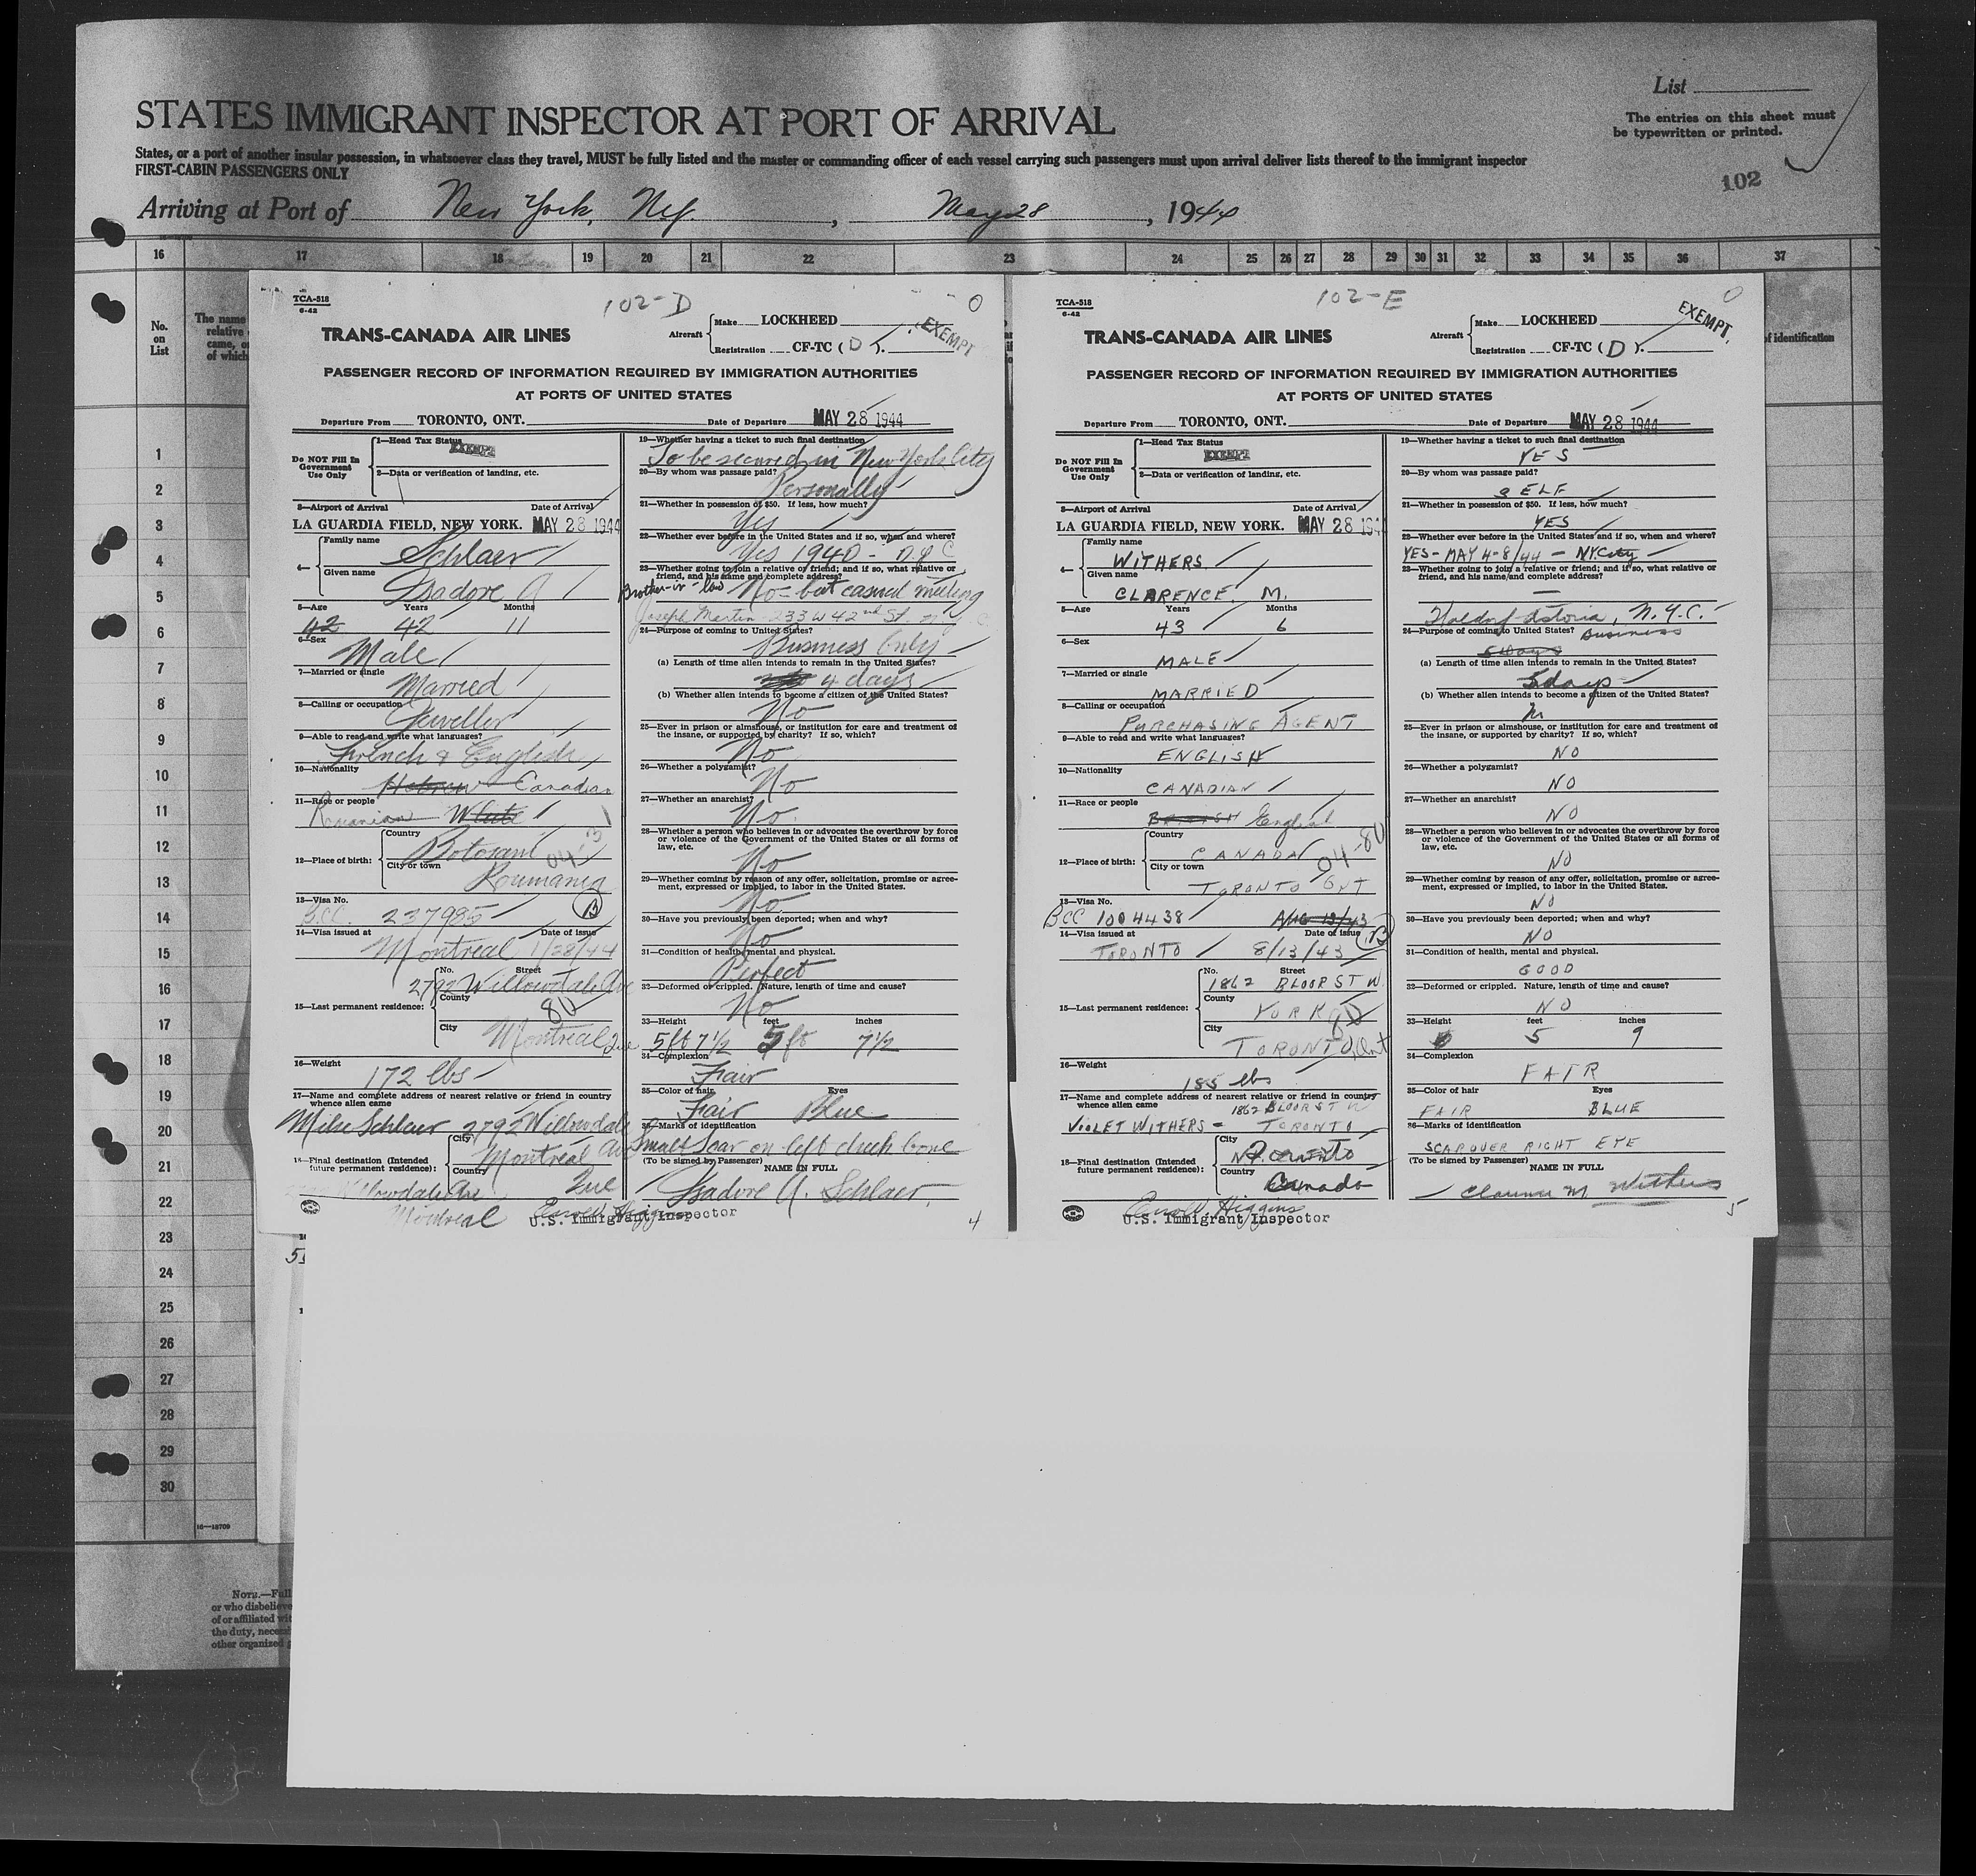 List
STATES IMMIGRANT INSPECTOR AT PORT OF ARRIVAL
The entries on this sheet must
be typewritten or printed.
States, or a port of another insular possession, in whatsoever class they travel, MUST be fully listed and the master or commanding officer of each vessel carrying such passengers must upon arrival deliver lists thereof to the immigrant inspector
FIRST-CABIN PASSENGERS ONLY
102
Arriving at Port of New York, NY. , May 28 , 1944
16 17 18 19 20 21 22 23 24 25 26 27 28 29 30 31 32 33 34 35 36 37
No.
on
List
The name
relative
came, o
of which
of identification
1
2
3
4
5
6
7
8
9
10
11
12
13
14
15
16
17
18
19
20
21
22
23
24
25
26
27
28
29
30
16—18709
NOTE.—Full
or who disbelieve
of or affiliated wit
the duty, necess
other organized g
TCA-518
6-42
102-D
0
TRANS-CANADA AIR LINES
Aircraft
Make LOCKHEED
Registration CF-TC ( D ).
EXEMPT
PASSENGER RECORD OF INFORMATION REQUIRED BY IMMIGRATION AUTHORITIES
AT PORTS OF UNITED STATES
Departure From TORONTO, ONT. Date of Departure MAY 28 1944
Do NOT Fill In
Government
Use Only
1—Head Tax Status
EXEMPT
2—Data or verification of landing, etc.
3—Airport of Arrival Date of Arrival
LA GUARDIA FIELD, NEW YORK. MAY 28 1944
4—
Family name
Schlaer
Given name
Isadore A
5—Age Years Months
42 42 11
6—Sex
Male
7—Married or single
Married
8—Calling or occupation
Jeweller
9—Able to read and write what languages?
French & English
10—Nationality
Hebrew Canadian
11—Race or people
Romanian White
12—Place of birth:
Country
Botosani
City or town
Roumania
13—Visa No.
B.C.C. 237985 B
14—Visa issued at Date of issue
Montreal 1/28/44
15—Last permanent residence:
No. Street
2792 Willowdale Ave
County
80
City
Montreal Que
16—Weight
172 lbs
17—Name and complete address of nearest relative or friend in country
whence alien came
Mike Schlaer 2792 Willowdale
18—Final destination (Intended
future permanent residence):
City
Montreal Ave
Country
Que
Willowdale Ave
Montreal
U.S. Immigrant Inspector
19—Whether having a ticket to such final destination
To be secured in New York City
20—By whom was passage paid?
Personally
21—Whether in possession of $50. If less, how much?
Yes
22—Whether ever before in the United States and if so, when and where?
Yes 1940 - N.Y.C
23—Whether going to join a relative or friend; and if so, what relative or
friend, and his name and complete address?
Brother-in-law No - but casual meeting
Joseph Martin 233 W 42nd St. N.Y.C
24—Purpose of coming to United States?
Business Only
(a) Length of time alien intends to remain in the United States?
4 days
(b) Whether alien intends to become a citizen of the United States?
No
25—Ever in prison or almshouse, or institution for care and treatment of
the insane, or supported by charity? If so, which?
No
26—Whether a polygamist?
No
27—Whether an anarchist?
No.
28—Whether a person who believes in or advocates the overthrow by force
or violence of the Government of the United States or all forms of
law, etc.
No
29—Whether coming by reason of any offer, solicitation, promise or agree-
ment, expressed or implied, to labor in the United States.
No
30—Have you previously been deported; when and why?
No
31—Condition of health, mental and physical.
Perfect
32—Deformed or crippled. Nature, length of time and cause?
No
33—Height feet inches
5ft 7 1/2 5 ft 7 1/2
34—Complexion
Fair
35—Color of hair Eyes
Fair Blue
36—Marks of identification
Small Scar on left cheek bone
(To be signed by Passenger) NAME IN FULL
Isadore A. Schlaer
4
TCA-518
6-42
102-E
0
TRANS-CANADA AIR LINES
Aircraft
Make LOCKHEED
Registration CF-TC ( D ).
EXEMPT.
PASSENGER RECORD OF INFORMATION REQUIRED BY IMMIGRATION AUTHORITIES
AT PORTS OF UNITED STATES
Departure From TORONTO, ONT. Date of Departure MAY 28 1944
Do NOT Fill In
Government
Use Only
1—Head Tax Status
EXEMPT
2—Data or verification of landing, etc.
3—Airport of Arrival Date of Arrival
LA GUARDIA FIELD, NEW YORK. MAY 28 194
4—
Family name
WITHERS
Given name
CLARENCE M.
5—Age Years Months
43 6
6—Sex
MALE
7—Married or single
MARRIED
8—Calling or occupation
PURCHASING AGENT
9—Able to read and write what languages?
ENGLISH
10—Nationality
CANADIAN
11—Race or people
BRITISH English
12—Place of birth:
Country
CANADA 04-80
City or town
TORONTO ONT
13—Visa No.
BCC 1004438 AUG 13/43 B
14—Visa issued at Date of issue
TORONTO 8/13/43
15—Last permanent residence:
No. Street
1862 BLOOR ST W.
County
YORK 80
City
TORONTO, Ont
16—Weight
185 lbs
17—Name and complete address of nearest relative or friend in country
whence alien came
1862 BLOOR ST W
VIOLET WITHERS - TORONTO
18—Final destination (Intended
future permanent residence):
City
Toronto
Country
Canada
Higgins
U.S. Immigrant Inspector
19—Whether having a ticket to such final destination
YES
20—By whom was passage paid?
SELF
21—Whether in possession of $50. If less, how much?
YES
22—Whether ever before in the United States and if so, when and where?
YES - MAY 4-8/44 - NYCity
23—Whether going to join a relative or friend; and if so, what relative or
friend, and his name and complete address?
—
Waldorf-Astoria, N.Y.C.
24—Purpose of coming to United States? Business
5 days
(a) Length of time alien intends to remain in the United States?
5 days
(b) Whether alien intends to become a citizen of the United States?
No
25—Ever in prison or almshouse, or institution for care and treatment of
the insane, or supported by charity? If so, which?
NO
26—Whether a polygamist?
NO
27—Whether an anarchist?
NO
28—Whether a person who believes in or advocates the overthrow by force
or violence of the Government of the United States or all forms of
law, etc.
NO
29—Whether coming by reason of any offer, solicitation, promise or agree-
ment, expressed or implied, to labor in the United States.
NO
30—Have you previously been deported; when and why?
NO
31—Condition of health, mental and physical.
GOOD
32—Deformed or crippled. Nature, length of time and cause?
NO
33—Height feet inches
5 9
34—Complexion
FAIR
35—Color of hair Eyes
FAIR BLUE
36—Marks of identification
SCAR OVER RIGHT EYE
(To be signed by Passenger) NAME IN FULL
Clarence M. Withers
5